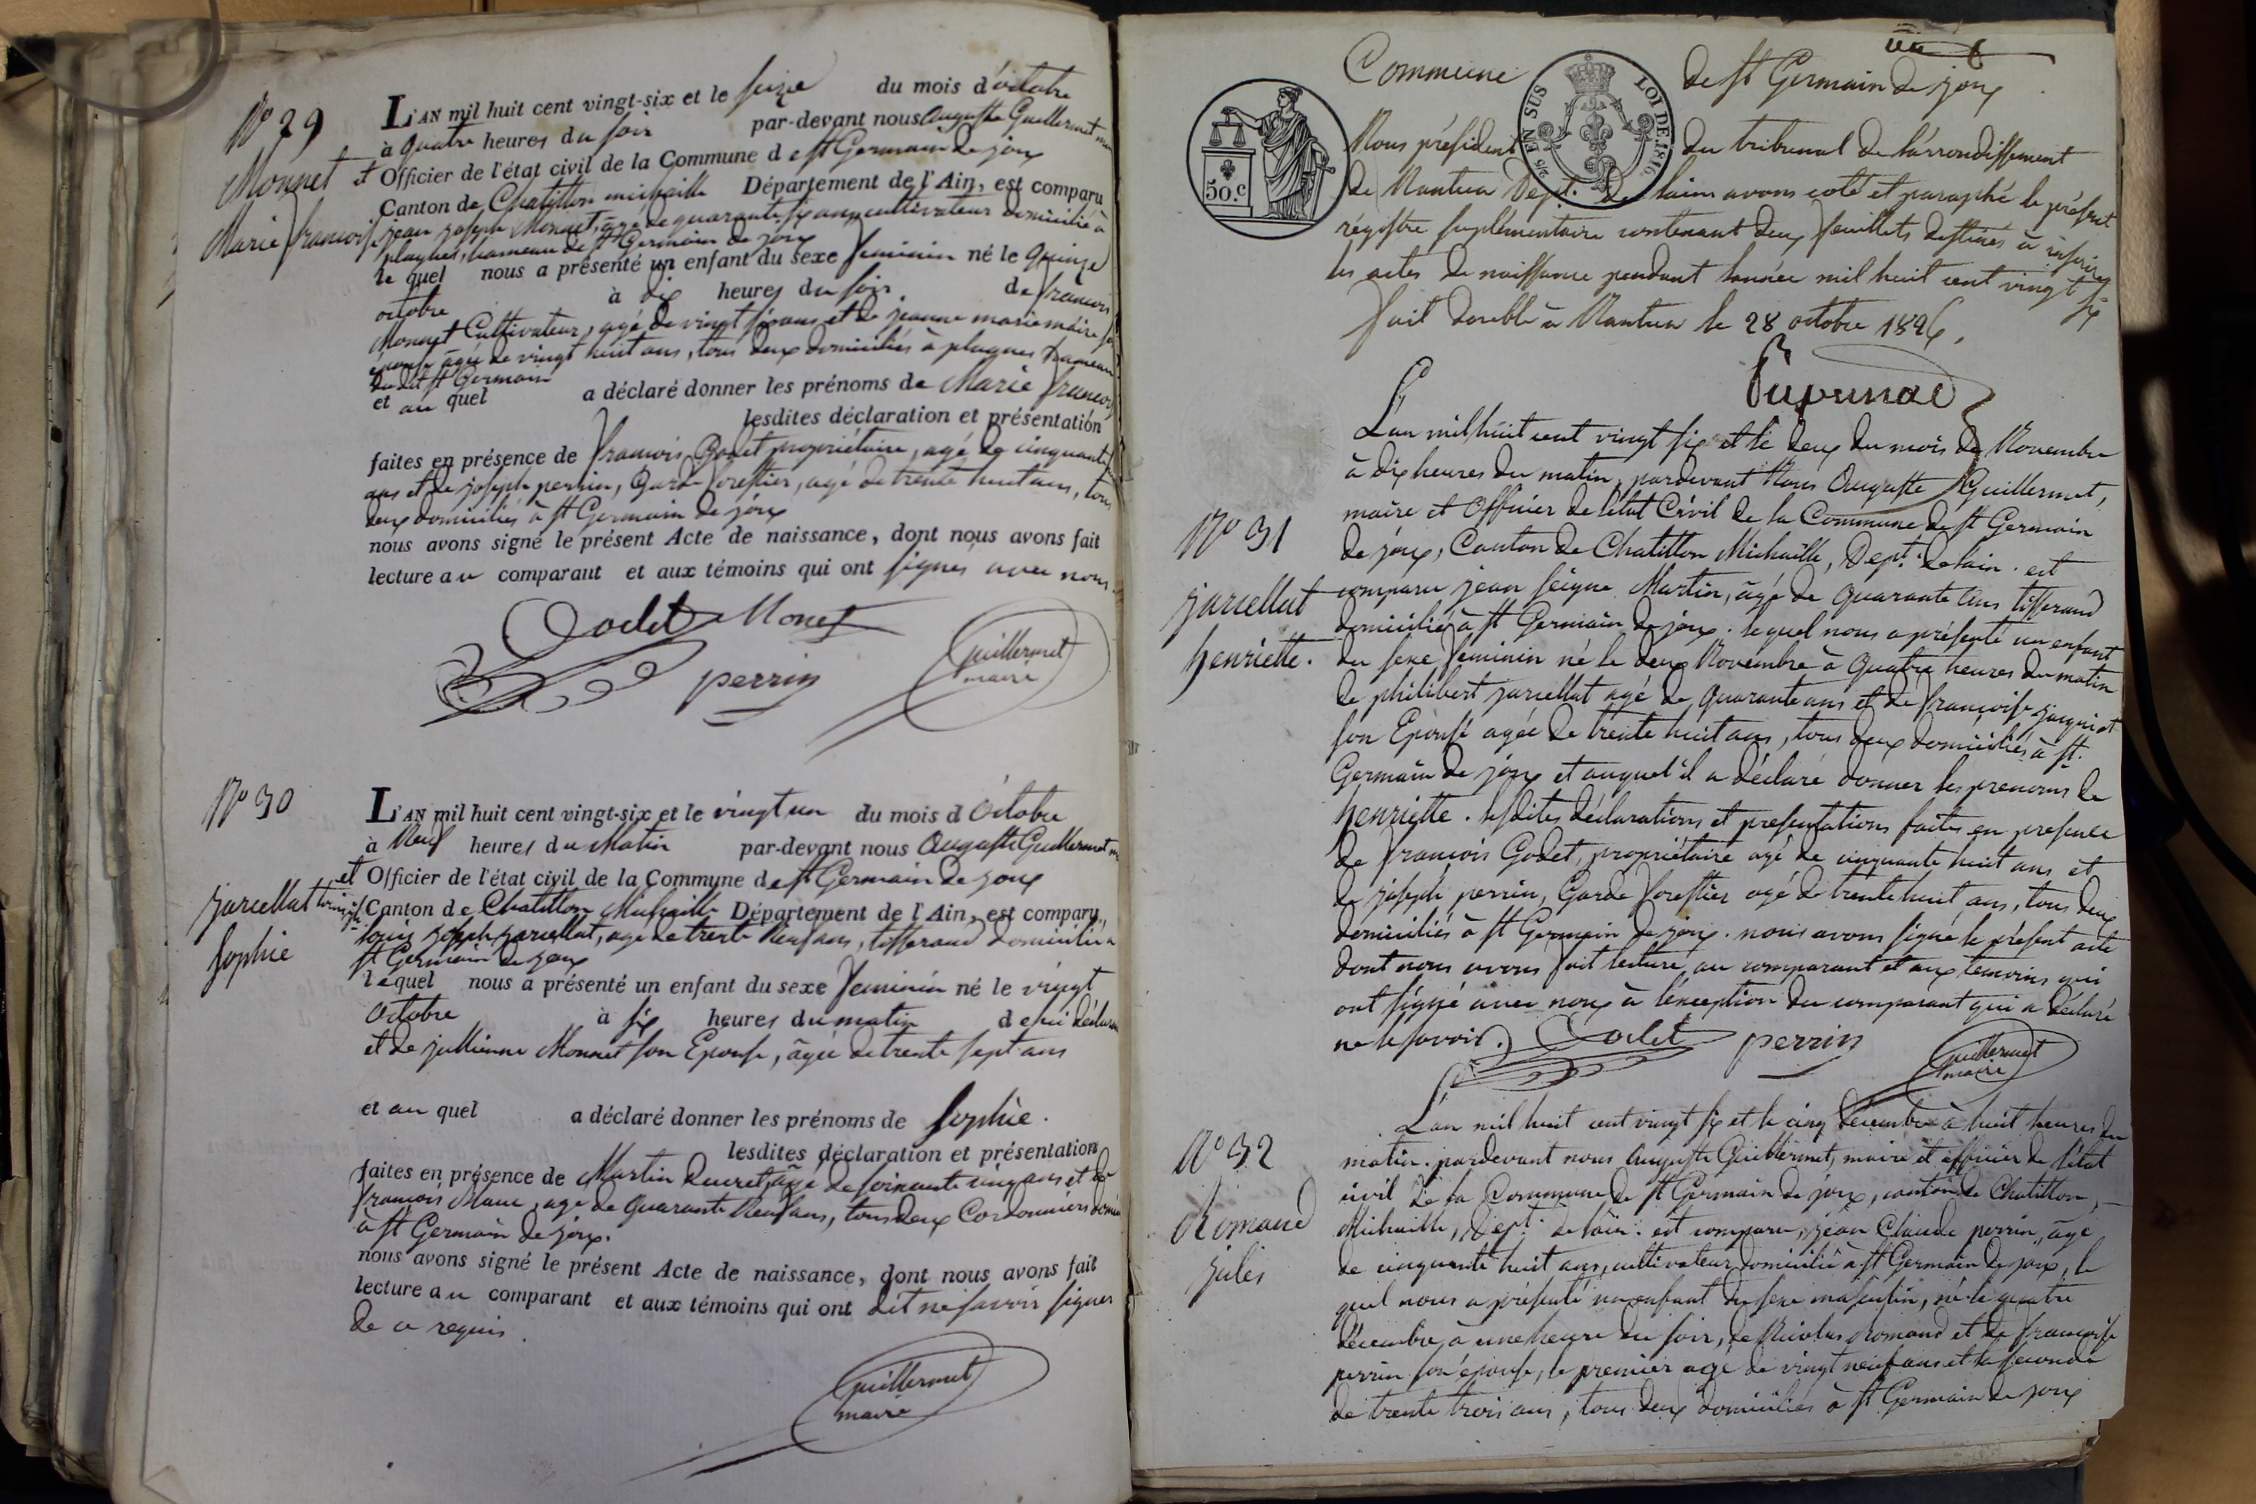 N° 29
Monnet
Marie françoise
L'AN mil huit cent vingt-six et le seize du mois d'octobre
à quatre heures du soir par-devant nous Auguste Guillermet
et Officier de l'état civil de la Commune de st Germain de joux
Canton de Chatillon michaille Département de l'Ain, est comparu
jean joseph Monnet, âgé de quarante six ans, cultivateur domicilié à
plagnes, hameau de st Germain de joux
le quel nous a présenté un enfant du sexe feminin né le quinze
octobre à dix heures du soir de francois
Monnet Cultivateur, agé de vingt six ans et de jeanne marie
épouse âgée de vingt huit ans, tous deux domiciliés à plagnes hameau
dudit st Germain
et au quel a déclaré donner les prénoms de Marie francoise
lesdites déclaration et présentation
faites en présence de francois Godet propriétaire, agé de cinquante
ans et de joseph perrin, Garde forestier, agé de trente huit ans, tous
deux domiciliés à st Germain de joux
nous avons signé le présent Acte de naissance, dont nous avons fait
lecture au comparant et aux témoins qui ont signés avec nous
Godet Monet
perrin
Guillermet
maire
N° 30
jarcellat
Sophie
L'AN mil huit cent vingt-six et le vingt un du mois d'Octobre
à Neuf heures du Matin par-devant nous Auguste Guillermet
et Officier de l'état civil de la Commune de st Germain de joux
Canton de Chatillon Michaille Département de l'Ain, est comparu
joseph jarcellat, agé de trente Neuf ans, tisserand domicilié à
st Germain de joux
lequel nous a présenté un enfant du sexe feminin né le vingt
octobre à six heures du matin de lui déclarant
et de jullienne Monnet son Epouse, âgée de trente sept ans
et au quel a déclaré donner les prénoms de Sophie.
lesdites déclaration et présentation
faites en présence de Martin Ducret, âgé de soixante cinq ans et de
françois Maue, age de quarante Neuf ans, tous deux Cordonniers
à st Germain de joux.
nous avons signé le présent Acte de naissance, dont nous avons fait
lecture au comparant et aux témoins qui ont dit ne savoir signer
de ce requis.
Guillermet
maire
Commune de st Germain de joux
50.c
EN SUS
LOI DE 1816
Nous président du tribunal de l'arrondissement
de Nantua Dept. de lain avons coté et paraphé le présent
régistre suplémentaire contenant deux feuillets destinés à inscrire
les actes de naissance pendant lannée mil huit cent vingt six
fait double à Nantua le 28 octobre 1826.
N° 31
jarcellat
henriette.
L'an mil huit cent vingt six et le deux du mois de Novembre
à dix heures du matin, pardevant Nous Auguste Guillermet,
maire et Officier de létat Civil de la Commune de st Germain
de joux, Canton de Chatillon Michaille, Dept. de lain. est
comparu jean Martin, âgé de quarante ans tisserand
domicilié à st Germain de joux. lequel nous a présenté un enfant
du sexe feminin né le deux Novembre à quatre heures du matin
de philibert jarcellat agé de quarante ans et de françoise
son Epouse agée de trente huit ans, tous deux domiciliés à st.
Germain de joux et auquel il a déclaré donner les prenoms de
henriette. lesdites déclarations et présentations faites en presence
de francois Godet, propriétaire agé de cinquante huit ans et
de joseph perrin, Garde forestier agé de trente huit ans, tous deux
domiciliés à st Germain de joux. nous avons signé le présent acte
dont nous avons fait lecture au comparant et aux témoins qui
ont signé avec nous à l'éxception du comparant qui a déclaré
ne le savoir.
Godet perrin
Guillermet
maire
N° 32
Romand
jules
L'an mil huit cent vingt six et le cinq décembre à huit heures du
matin. pardevant nous Auguste Guillermet, maire et officier de l'état
civil de la Commune de st Germain de joux, canton de Chatillon,
Michaille, Dept. de lain. est comparu, jean Claude perrin, âgé
de cinquante huit ans, cultivateur domicilié à st Germain de joux, le
quel nous a présenté un enfant du sexe masculin, né le quatre
décembre, à une heure du soir, de Nicolas Romand et de françoise
perrin son épouse, le premier agé de vingt neuf ans et la seconde
de trente trois ans, tous deux domiciliés à st Germain de joux